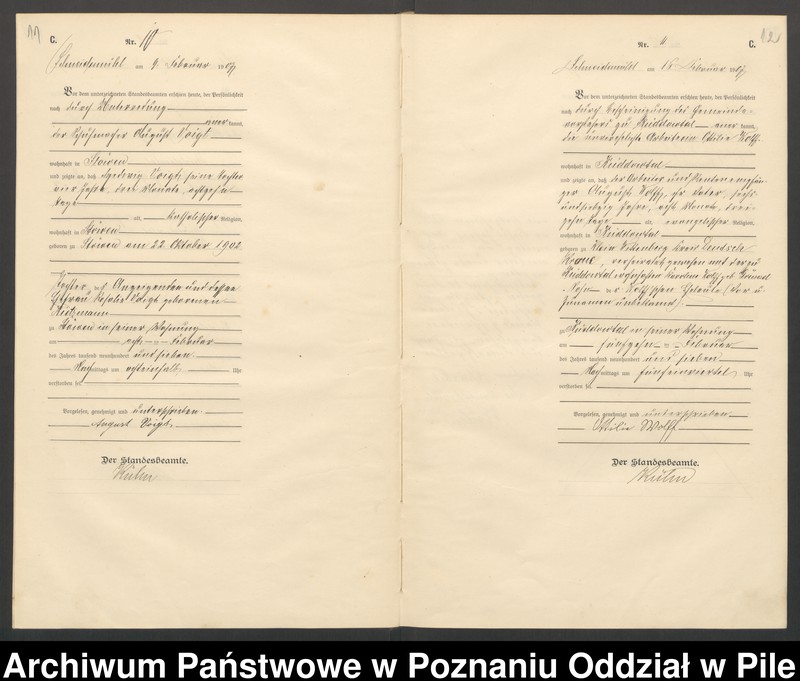 11
C.
Nr. 10
Schneidemühl am 9. Februar 1907
Vor dem unterzeichneten Standesbeamten erschien heute, der Persönlichkeit
nach durch Unterredung
kannt,
der August Voigt
wohnhaft in Stöwen
und zeigte an, daß Hedwig Voigt, seine Tochter
vier Jahre, drei Monate, achtzehn
Tage
alt, katholischer Religion,
wohnhaft in Stöwen
geboren zu Stöwen am 22. Oktober 1902
Tochter des Anzeigenden und dessen
Ehefrau Rosalie Voigt geborenen
zu Stöwen in seiner Wohnung
am acht Februar
des Jahres tausend neunhundert und sieben
Nachmittags um Uhr
verstorben sei.
Vorgelesen, genehmigt und unterschrieben
August Voigt
Der Standesbeamte.
Kühn
12
C.
Nr. 11
Schneidemühl am Februar 1907
Vor dem unterzeichneten Standesbeamten erschien heute, der Persönlichkeit
nach durch Bescheinigung des Gemeinde-
vorstehers zu Küddowtal kannt,
die unverehelichte Arbeiterin Ottilie Wolff
wohnhaft in Küddowtal
und zeigte an, daß der Arbeiter und Rentenempfän-
ger August Wolff, ihr Vater, sechs
undsechzig Jahre, acht Monate, drei-
zehn Tage alt, evangelischer Religion,
wohnhaft in Küddowtal
geboren zu Klein Wittenberg Kreis Deutsch
Krone, verheiratet gewesen mit der zu
Küddowtal wohnhaften Karoline Wolff geb.
Sohn der Wolff'schen Eheleute (Vor u.
Zunamen unbekannt).
zu Küddowtal in seiner Wohnung
am fünfzehn Februar
des Jahres tausend neunhundert und sieben
Nachmittags um fünfeinviertel Uhr
verstorben sei.
Vorgelesen, genehmigt und unterschrieben
Ottilie Wolff
Der Standesbeamte.
Kühn
Archiwum Państwowe w Poznaniu Oddział w Pile